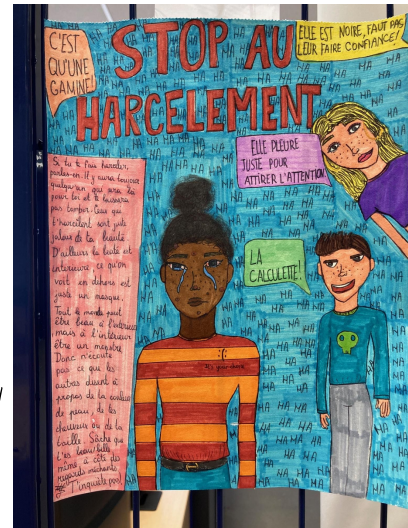 C'EST
QU'UNE
GAMINE!
STOP AU
HARCELEMENT
ELLE EST NOIRE, FAUT PAS
LEUR FAIRE CONFIANCE!
ELLE PLEURE
JUSTE POUR
ATTIRER L'ATTENTION
LA
CALCULETTE!
Si tu te fais harceler,
parles-en. Il y aura toujours
quelqu'un qui sera là
pour toi et te laissera
pas tomber. Ceux qui
t'harcèlent sont juste
jaloux de ta beauté.
D'ailleurs la beauté est
intérieure, ce qu'on
voit en dehors est
juste un masque.
Tout le monde peut
être beau à l'extérieur
mais à l'intérieur
être un monstre
Donc n'écoute
pas ce que les
autres disent à
propos de ta couleur
de peau, de tes
cheveux ou de ta
taille. Sache que
t'es beau/belle
même à côté des
regards méchants.
T'inquiète pas!
HA HA HA HA